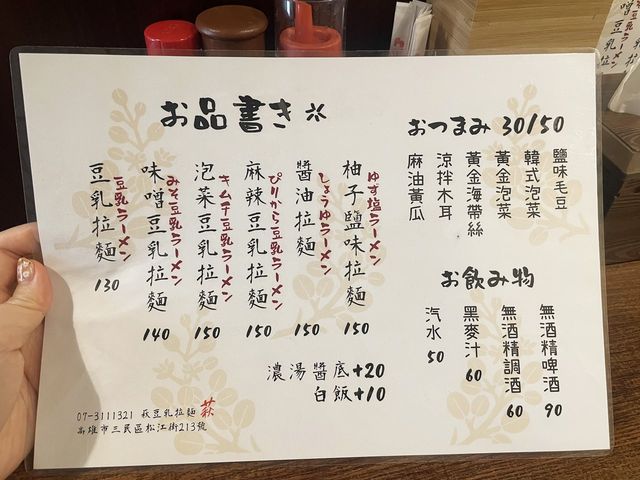 お品書き
柚子鹽味拉麵
ゆず塩ラーメン
150
醬油拉麵
しょうゆラーメン
150
麻辣豆乳拉麵
ぴりから豆乳ラーメン
150
泡菜豆乳拉麵
キムチ豆乳ラーメン
150
味噌豆乳拉麵
みそ豆乳ラーメン
140
豆乳拉麵
豆乳ラーメン
130
濃湯醬底+20
白飯+10
おつまみ 30/50
鹽味毛豆
韓式泡菜
黃金泡菜
黃金海帶絲
涼拌木耳
麻油黃瓜
お飲み物
無酒精啤酒
90
無酒精調酒
60
黑麥汁
60
汽水
50
07-3111321 萩豆乳拉麵 萩
高雄市三民區松江街213號